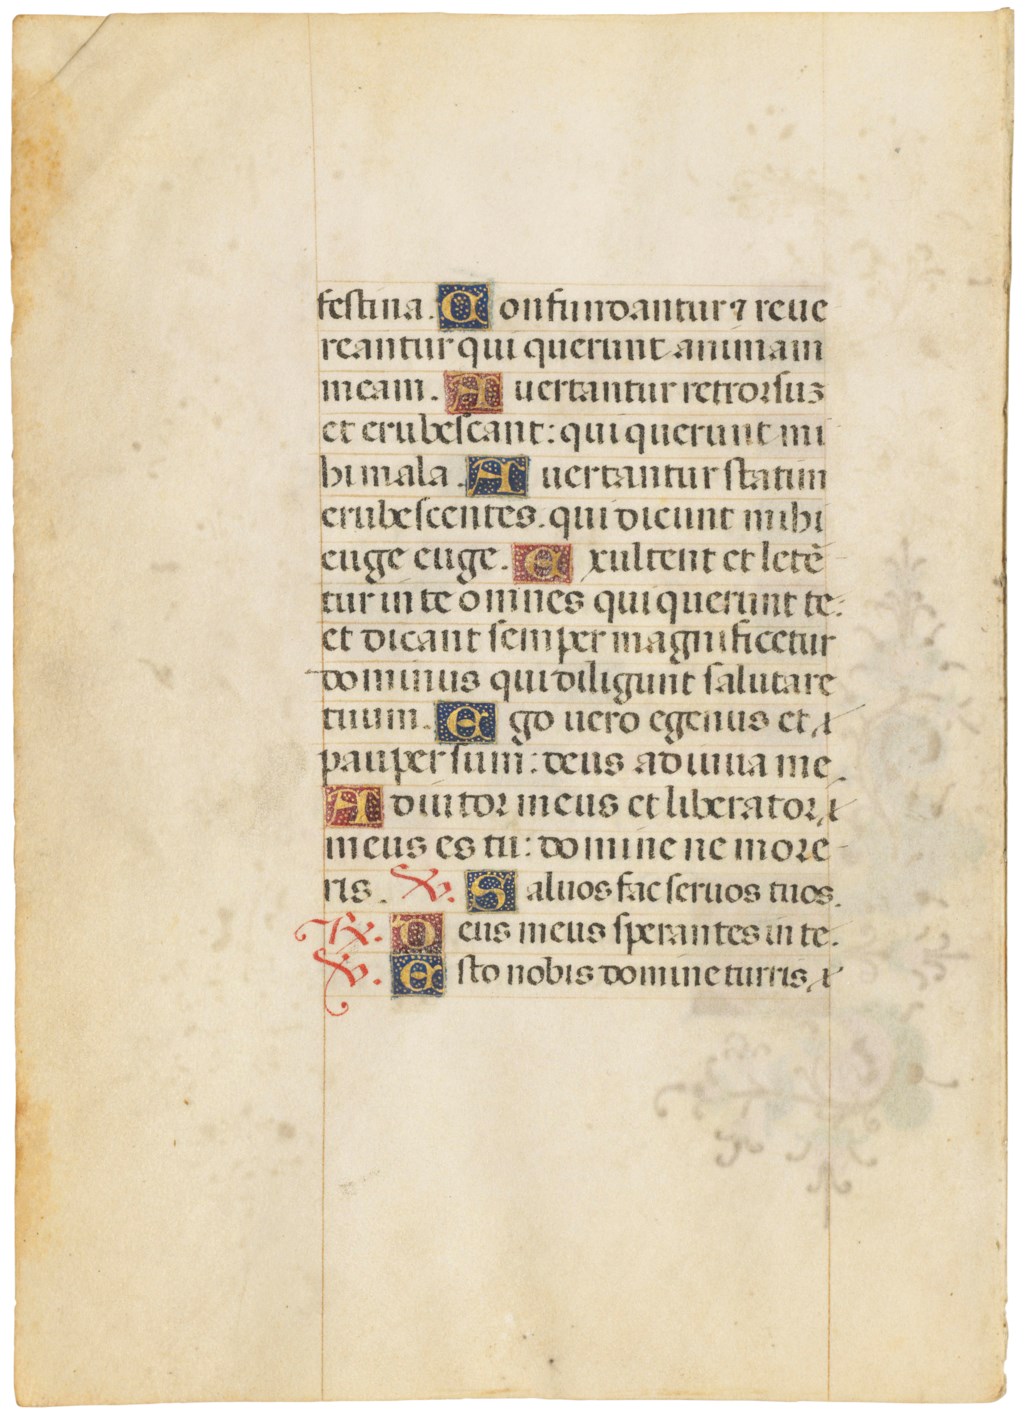 festina. Confundantur ⁊ reue
reantur qui querunt animam
meam. Auertantur retrorsuʒ
et erubescant: qui querunt mi
hi mala. Auertantur statim
erubescentes. qui dicunt mihi
euge euge. Exultent et letē
tur in te omnes qui querunt te:
et dicant semper magnificetur
dominus qui diligunt salutare
tuum. Ego uero egenus et
pauper sum: deus adiuua me.
Adiutor meus et liberator
meus es tu: domine ne more
ris. ℣. Saluos fac seruos tuos.
℟. Deus meus sperantes in te.
℣. Esto nobis domine turris